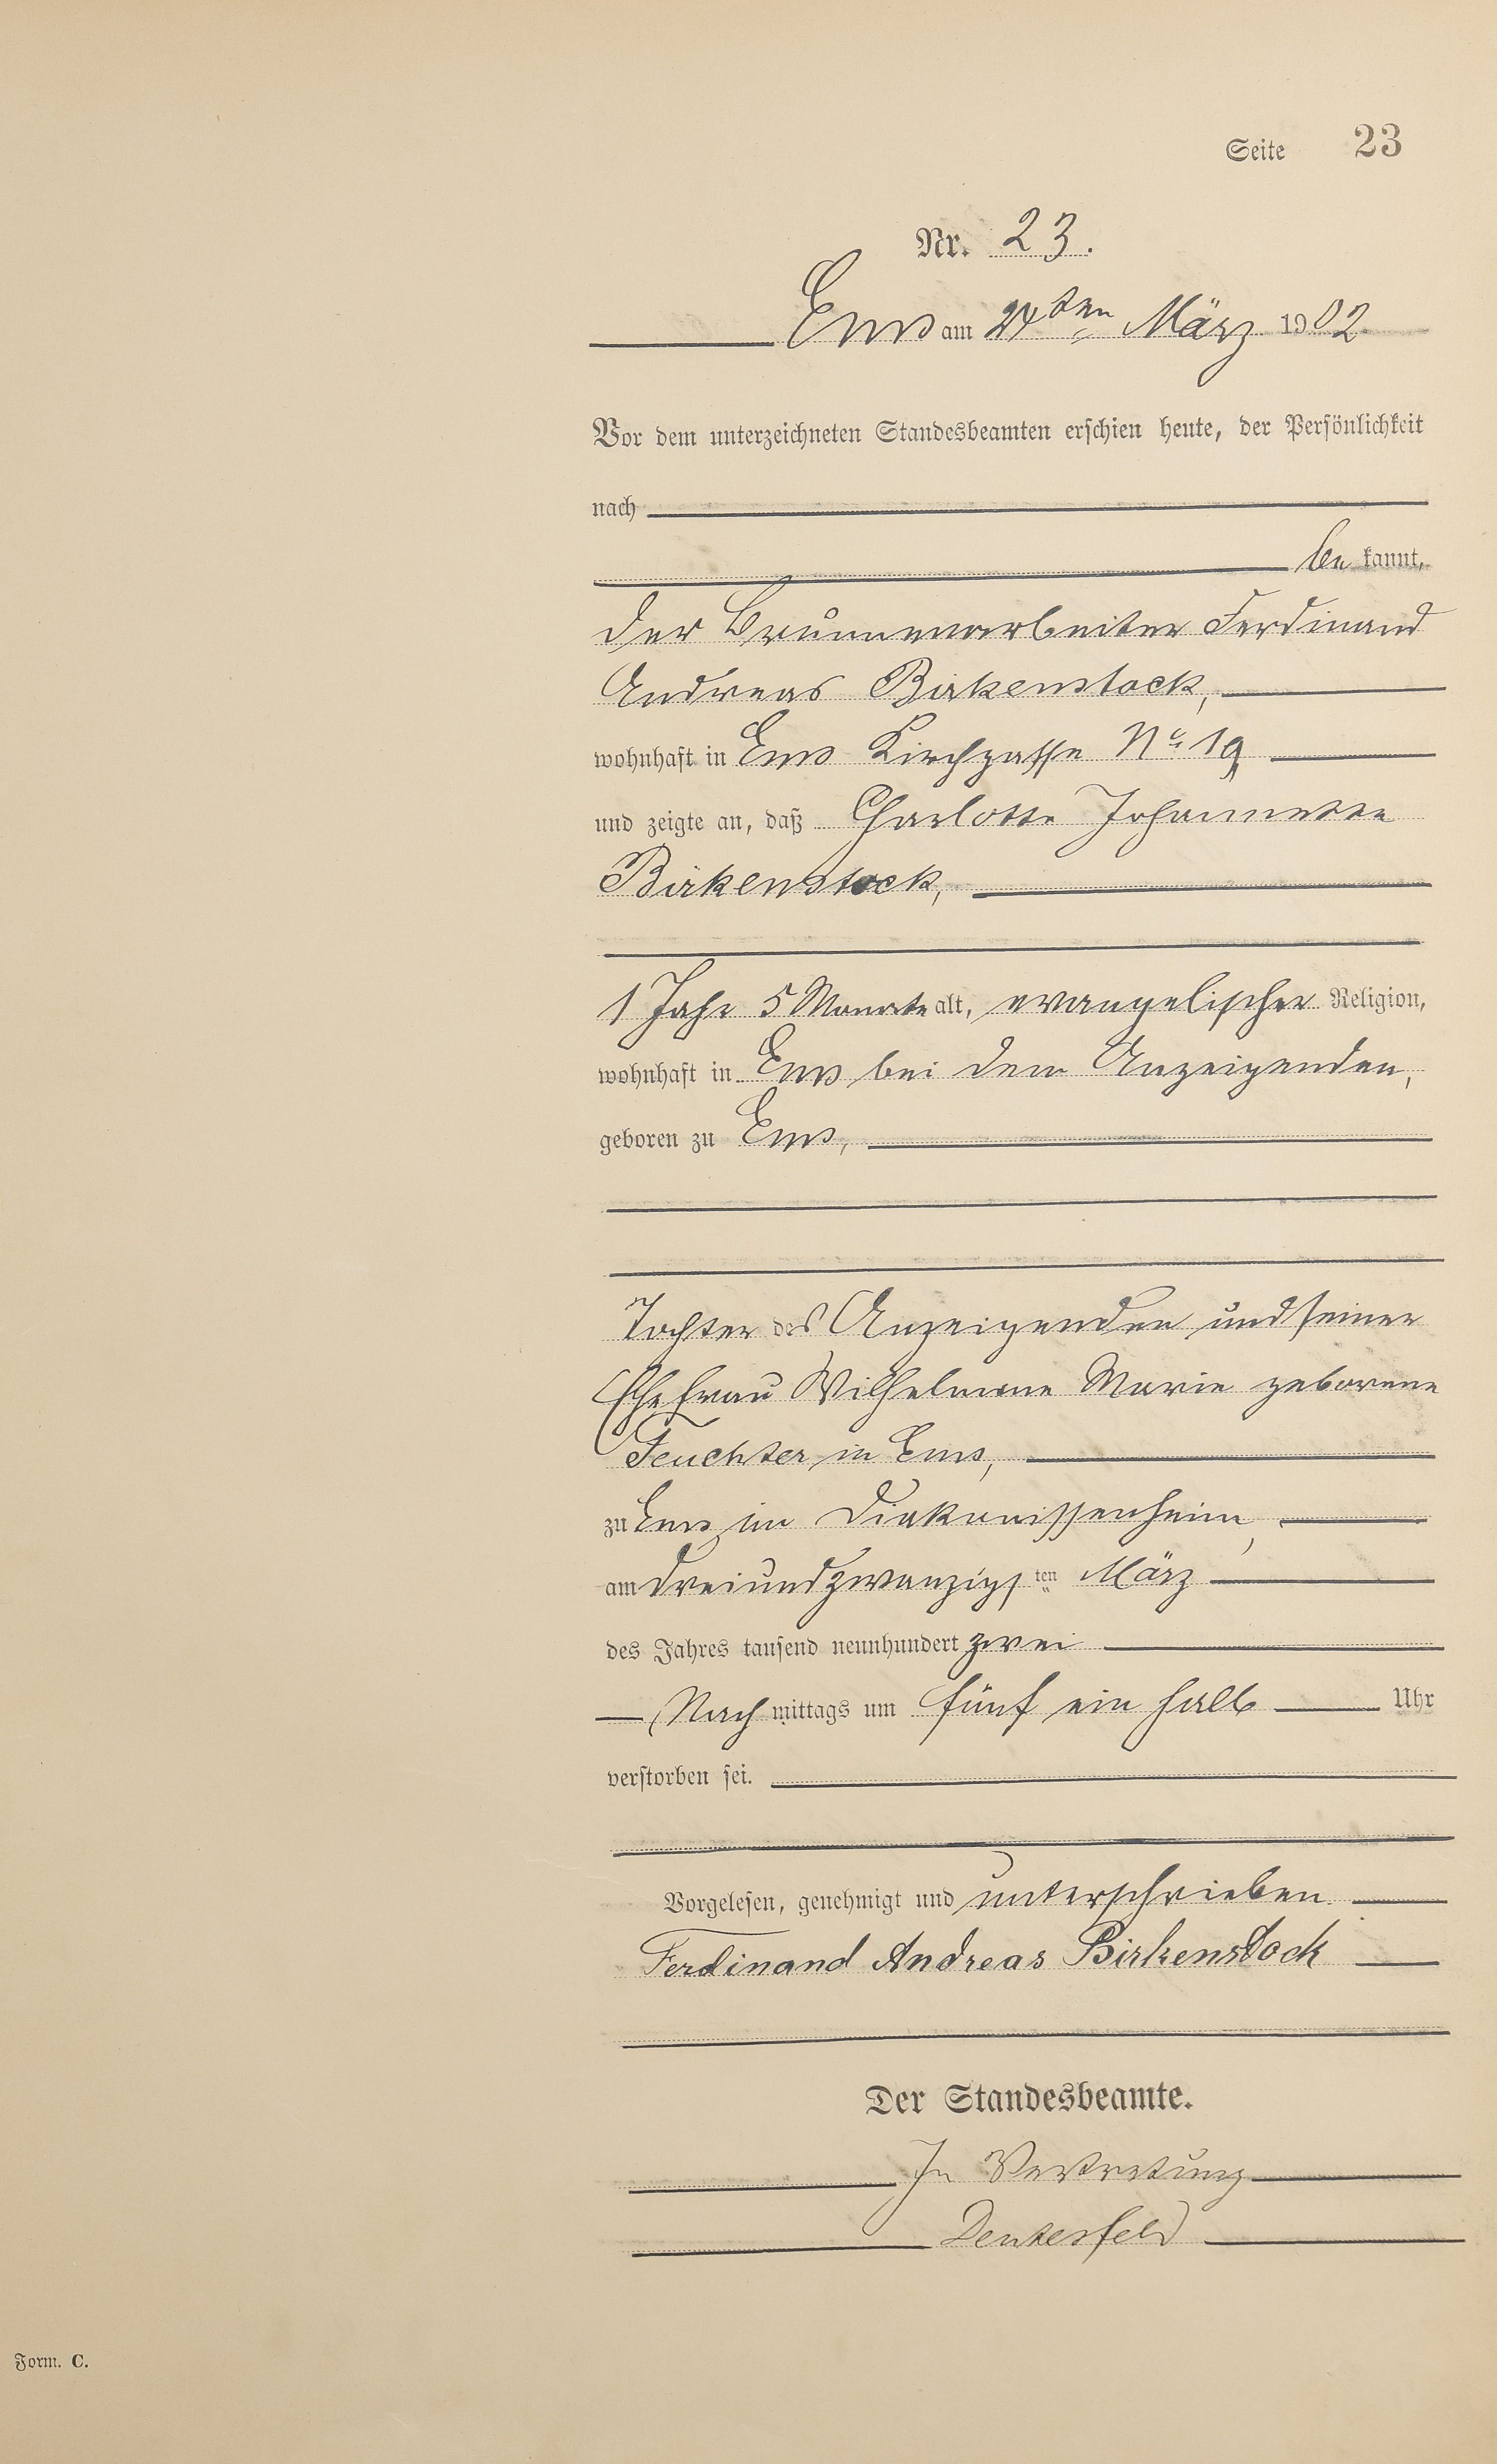 Seite 23
Nr. 23.
Ems am 24ten März 1902.
Vor dem unterzeichneten Standesbeamten erschien heute, der Persönlichkeit
nach
be kannt,
der Brunnenarbeiter Ferdinand
Andreas Birkenstock,
wohnhaft in Ems Kirchgasse No 19
und zeigte an, daß Charlotte Johannette
Birkenstock,
1 Jahr 5 Monate alt, evangelischer Religion,
wohnhaft in Ems bei dem Anzeigenden,
geboren zu Ems,
Tochter des Anzeigenden und seiner
Ehefrau Wilhelmine Marie geborene
Feuchter in Ems,
zu Ems im Diakonissenheim,
am dreiundzwanzigsten März
des Jahres tausend neunhundert zwei
Nach mittags um fünf ein halb Uhr
verstorben sei.
Vorgelesen, genehmigt und unterschrieben.
Ferdinand Andreas Birkenstock
Der Standesbeamte.
In Vertretung
Form. C.